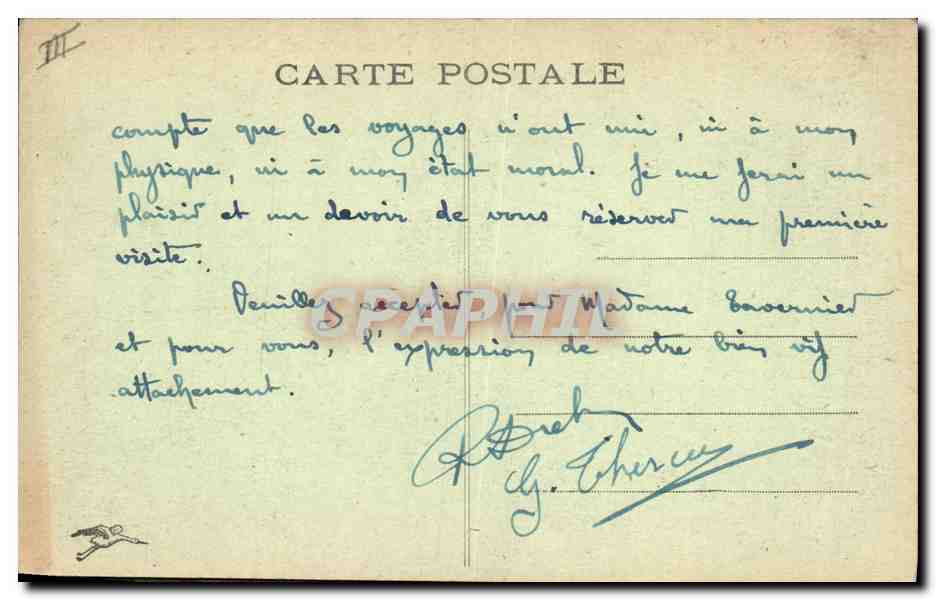 III
CARTE POSTALE
compte que les voyages n'ont nui, ni à mon
physique, ni à mon état moral. Je me ferai un
plaisir et un devoir de vous réserver ma première
visite.
Veuillez accepter pour Madame Tavernier
et pour vous, l'expression de notre bien vif
attachement.
CPAPHIL
G.